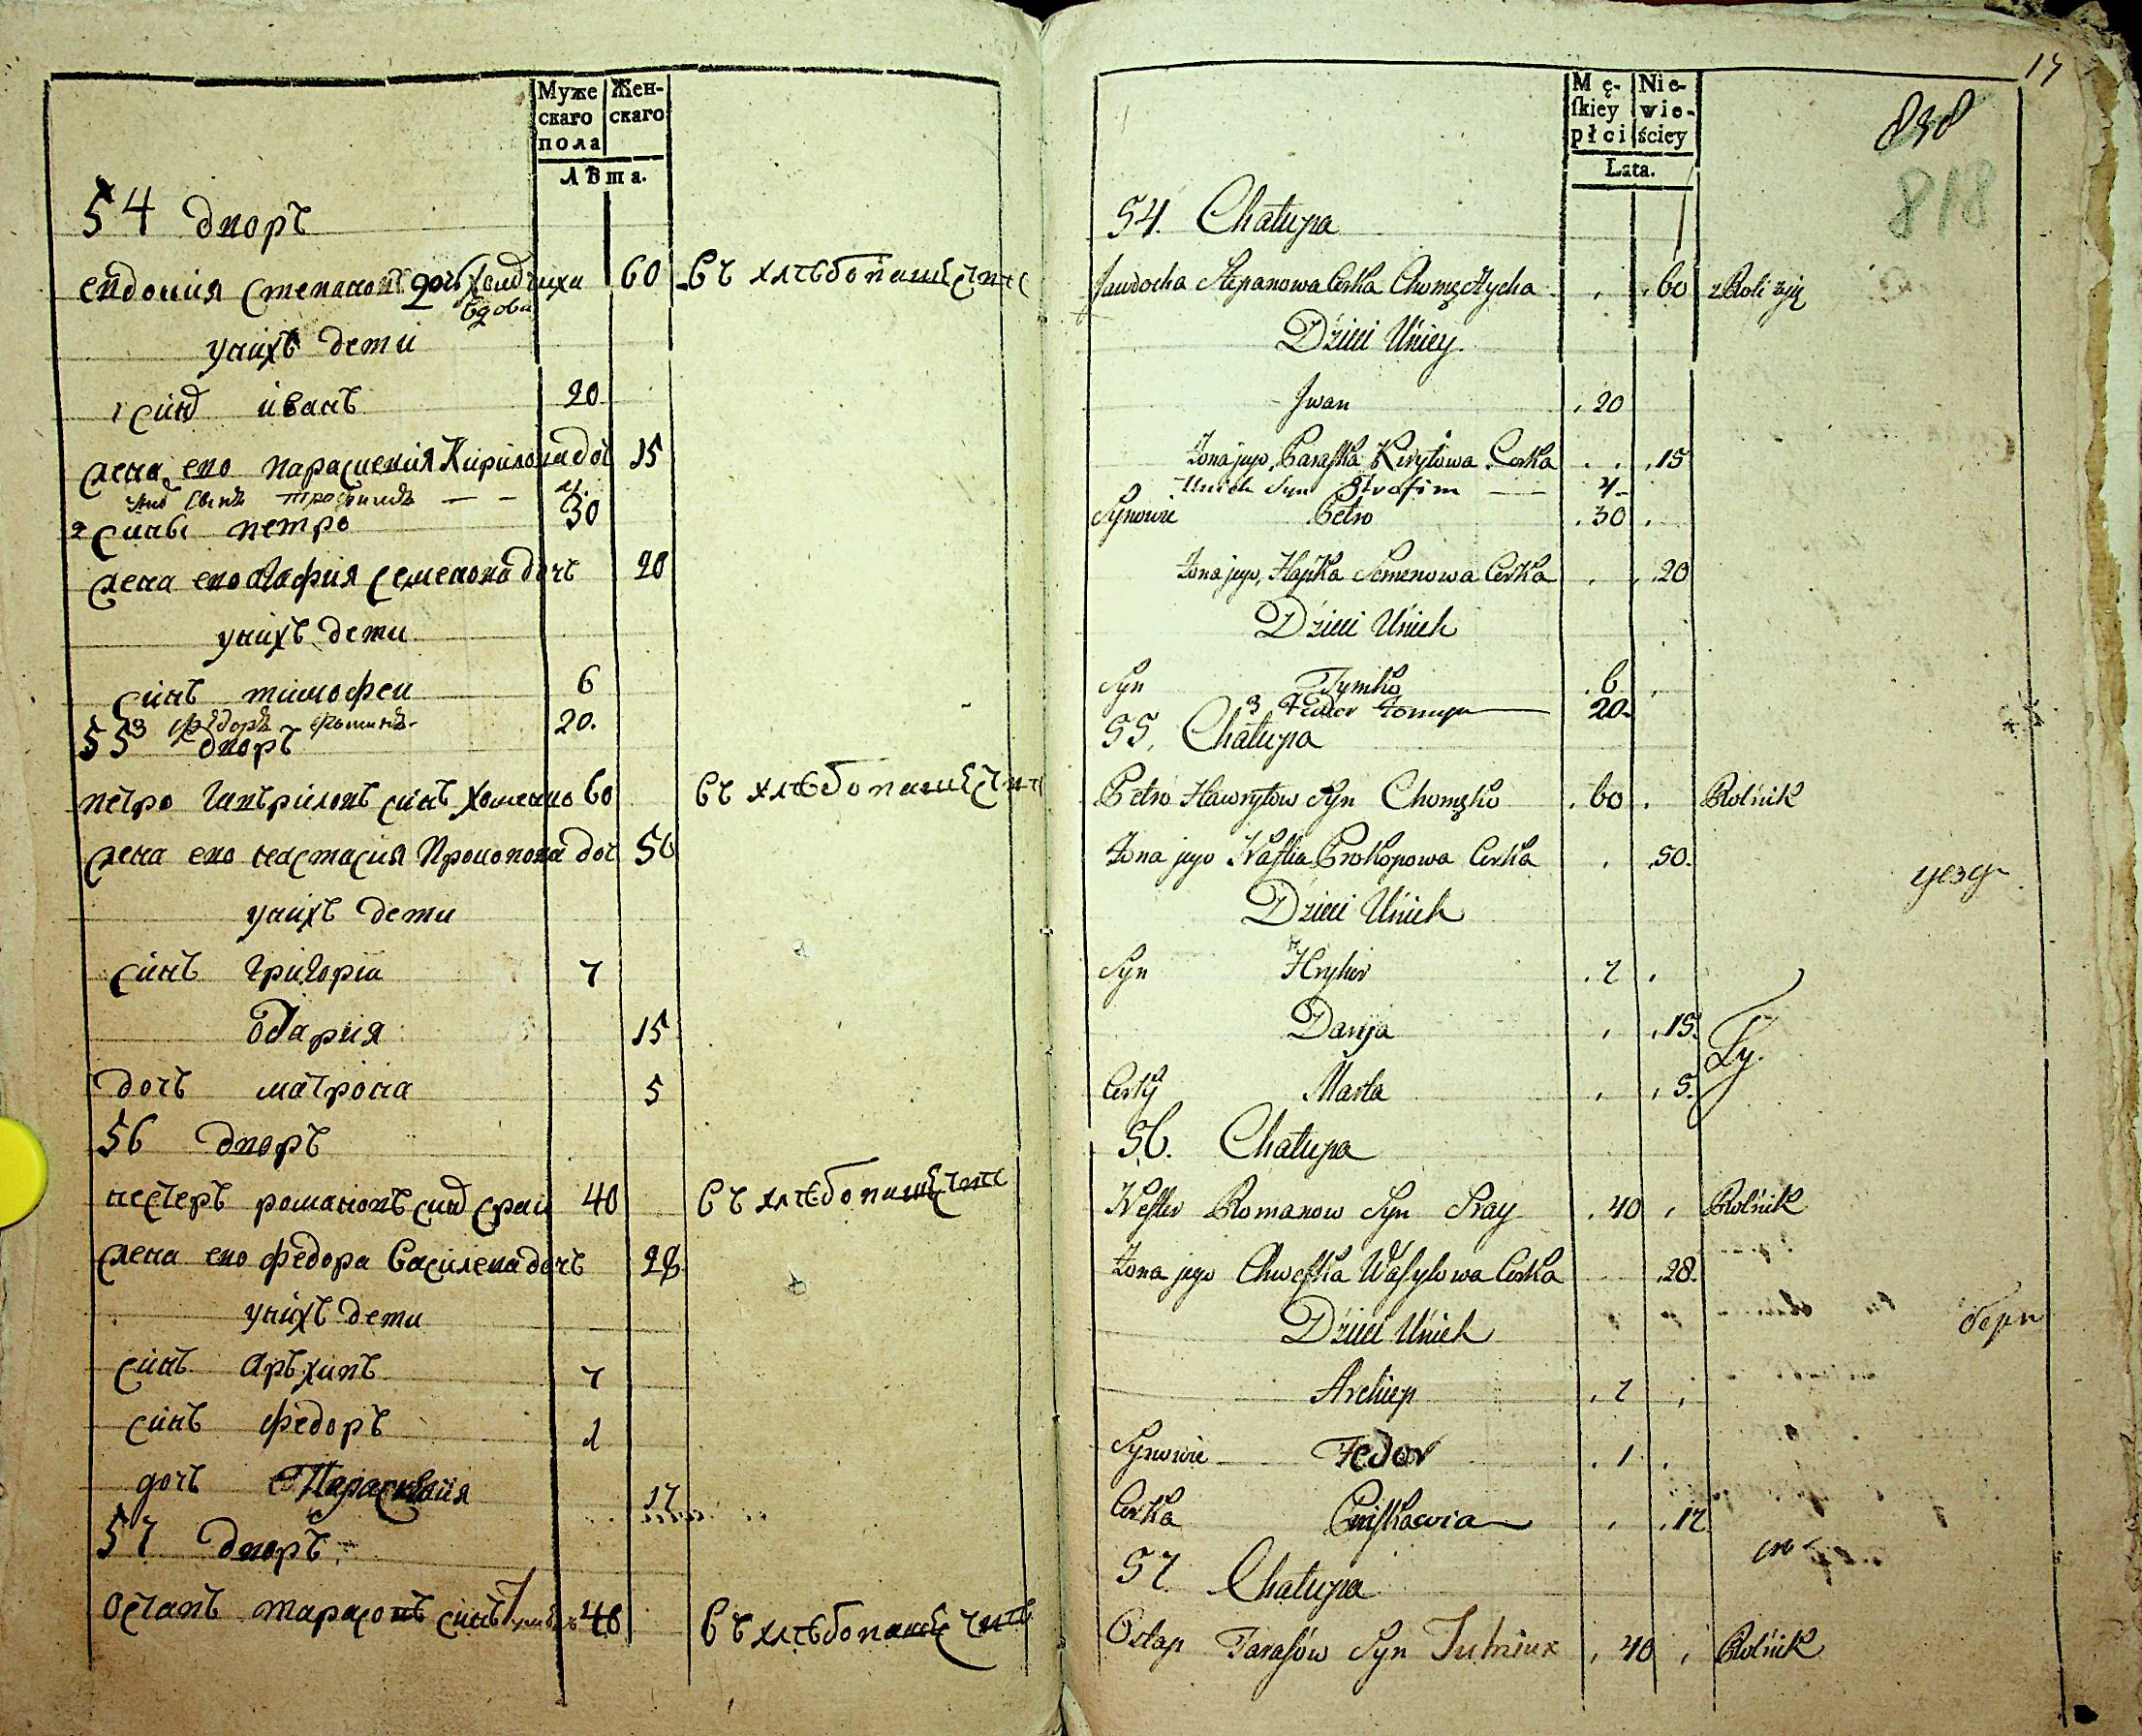 Муже
скаго
пола
Жен-
скаго
Лѣта.
54 дворъ
Евдокия Степанова дочь
вдова
60
въ хлебопашестве
у них дети
1 синъ иванъ 20
жена его параскевия Кирилова доч 15
4
2 сины петро 30
жена его агафия Семенова дочъ 20
у нихъ дети
синъ тимофеи 6
3 Федоръ 20.
55 дворъ
петро Гавъриловъ синъ Хоменко 60 въ хлебопашестве
жена его настасия Прокопова доч 50
у нихъ дети
синъ григории 7
дария 15
дочъ матрона 5
56 дворъ
нестеръ романовъ синъ срай 40 въ хлебопашестве
жена его федора Василева дочъ 28
у нихъ дети
синъ архипъ 7
синъ федоръ 1
дочъ Параскевия 17
57 дворъ
остапъ тарасовъ синъ 40 въ хлебопашестве
14
Mę-
skiey
płci
Nie-
wie-
ściey
Lata.
818
54. Chałupa
Jawdocha Stepanowa Corka 60 z Roli żyje
Dzieci Uniey
Iwan 20
Żona jego, Paraska Kiryłowa Corka 15
Unich Syn Strofim 4
Synowie Petro 30
Żona jego, Hapka Semenowa Corka 20
Dzieci Unich
Syn Tymko 6
3 Fedor 20
55. Chałupa
Petro Hawryłow Syn Chomęko 60 Rolnik
Żona jego Nastia Prokopowa Corka 50.
уезд
Dzieci Unich
Syn Hryhor 7
Darya 15
Corky Marta 5
56. Chałupa
Nester Romanow Syn Sray 40 Rolnik
Żona jego Chweska Wasylowa Corka 28.
Dzieci Unich
Archiep 7
Synowie Fedor 1
Corka 17
57 Chałupa
Ostap Tarasów Syn 40 Rolnik